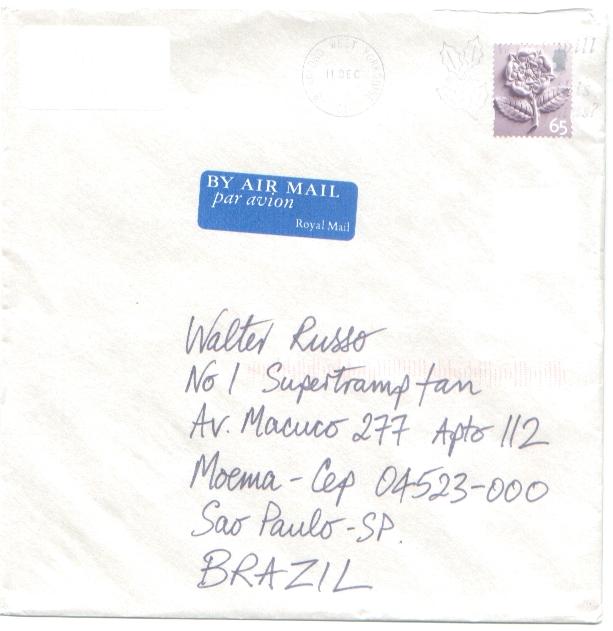 WEST YOR
11 DEC
65
BY AIR MAIL
par avion
Royal Mail
Walter Russo
No 1 Supertramp fan
Av. Macuco 277 Apto 112
Moema - Cep 04523-000
Sao Paulo - SP.
BRAZIL